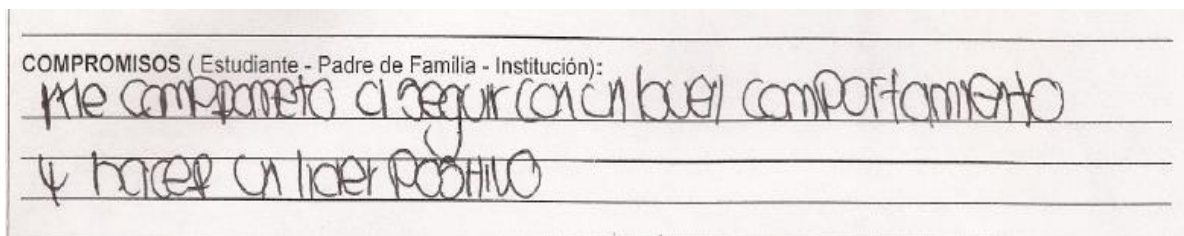 COMPROMISOS ( Estudiante - Padre de Familia - Institución):
me comprometo a seguir con un buen comportamiento
y hacer un lider positivo